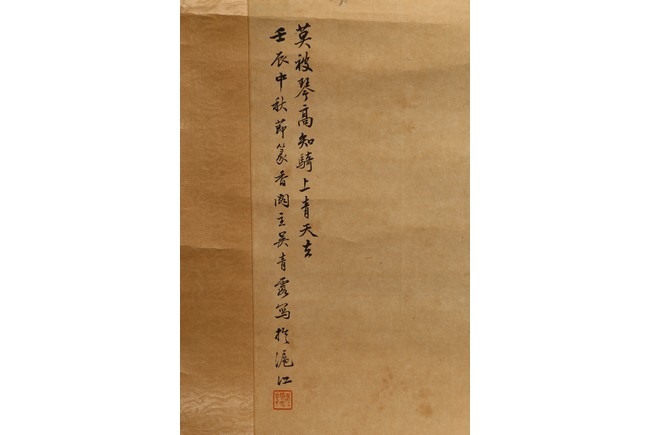 莫被琴高知騎上青天去
壬辰中秋節篆香閣主吳青霞寫於滬江